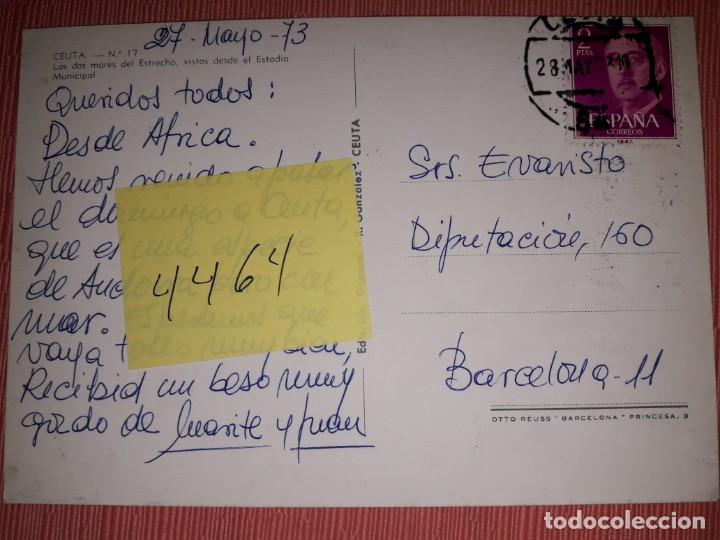 27-Mayo-73
CEUTA. — N.º 17
Los dos mares del Estrecho, vistos desde el Estadio
Municipal
Queridos todos:
Desde Africa.
Hemos venido a pasar
el domingo a Ceuta,
que es una especie
de Andorra pero con
mar. Esperamos que
vaya todo muy bien,
Recibid un beso muy
gordo de Marite y Juan
4464
González - CEUTA
28 MAY
2
PTAS
ESPAÑA
CORREOS
Srs. Evaristo
Diputación, 160
Barcelona-11
OTTO REUSS "BARCELONA" PRINCESA, 3
todocoleccion
todocoleccion.net